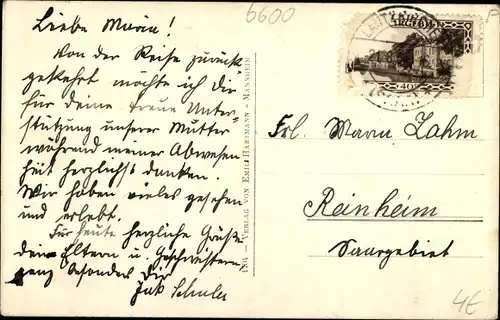 Liebe Maria!
Von der Reise zurück
gekehrt möchte ich dir
für deine treue Unter-
stützung unserer Mutter
während meiner Abwesen
heit herzlichst danken.
Wir haben vieles gesehen
und erlebt.
Für heute herzliche Grüße
dein Eltern u. Geschwistern
ganz besonders Dir
Jak Schuler
VERLAG VON EMIL HARTMANN - MANNHEIM
6600
40
Frl. Maria Lahm
Reinheim
Saargebiet
4€